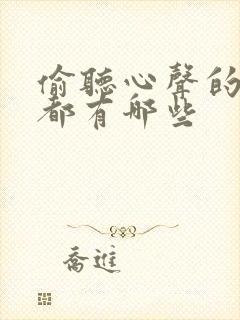 偷聽心聲的
都有哪些
喬進